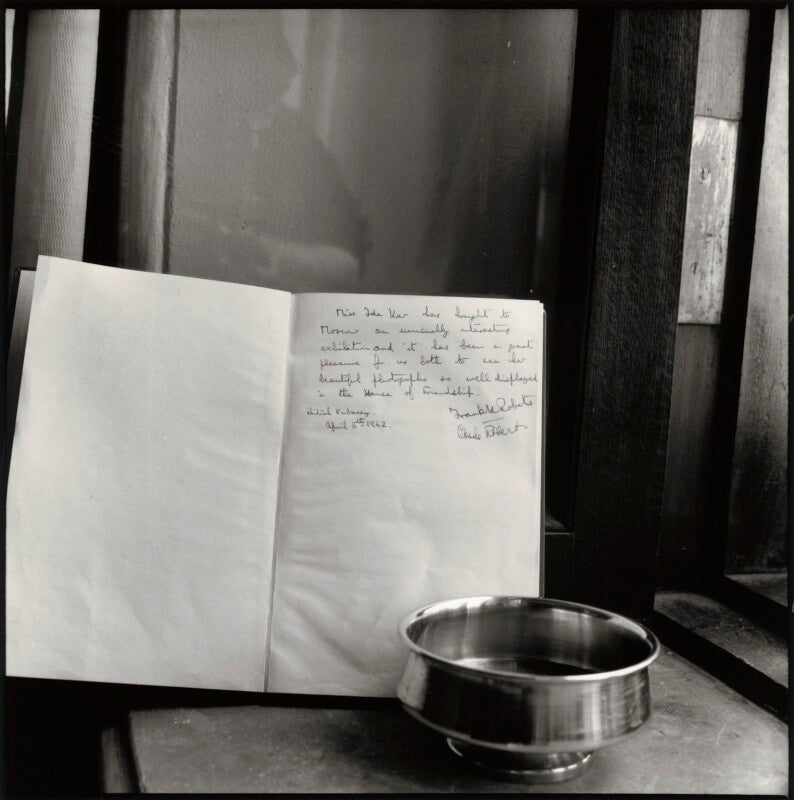 Miss Ida Kar has brought to
Moscow an unusually interesting
exhibition and it has been a great
pleasure for us both to see her
beautiful photographs so well displayed
in the House of Friendship.
British Embassy.
April 5th 1962.
Frank K Roberts
Roberts